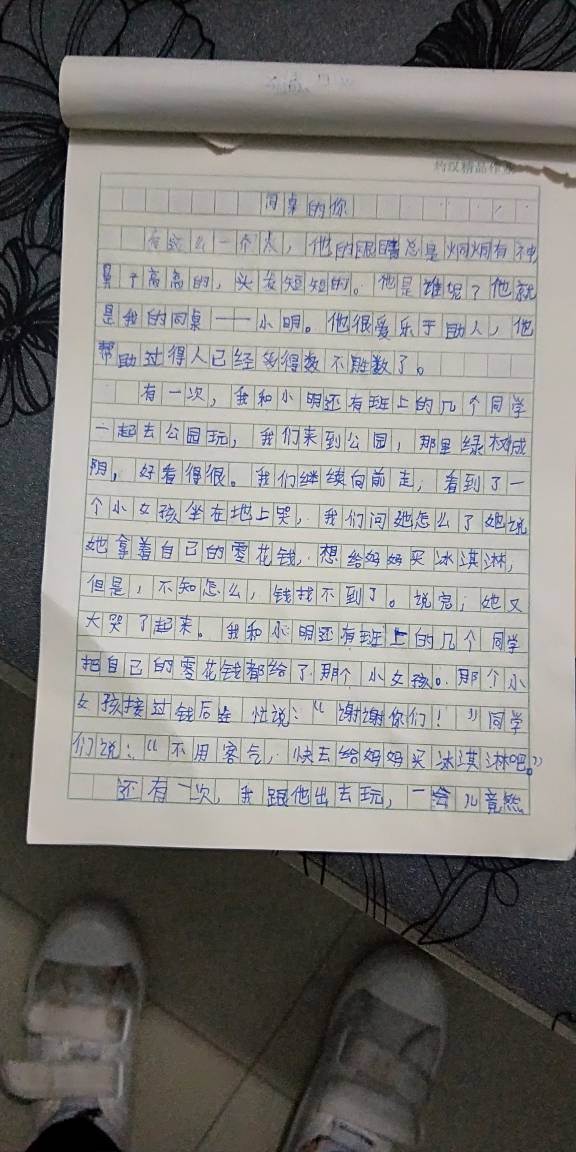 同桌的你
有这么一个人，他的眼睛总是炯炯有神
鼻子高高的，头发短短的。他是谁呢？他就
是我的同桌——小明。他很爱乐于助人，他
帮助过得人已经多得数不胜数了。
有一次，我和小明还有班上的几个同学
一起去公园玩，我们来到公园，那里绿树成
阴，好看得很。我们继续向前走，看到了一
个小女孩坐在地上哭，我们问她怎么了她说
她拿着自己的零花钱，想给妈妈买冰淇淋，
但是，不知怎么，钱找不到了。说完，她又
大哭了起来。我和小明还有班上的几个同学
把自己的零花钱都给了那个小女孩。那个小
女孩接过钱后连忙说：“谢谢你们！”同学
们说：“不用客气，快去给妈妈买冰淇淋吧。”
还有一次，我跟他出去玩，一会儿竟然